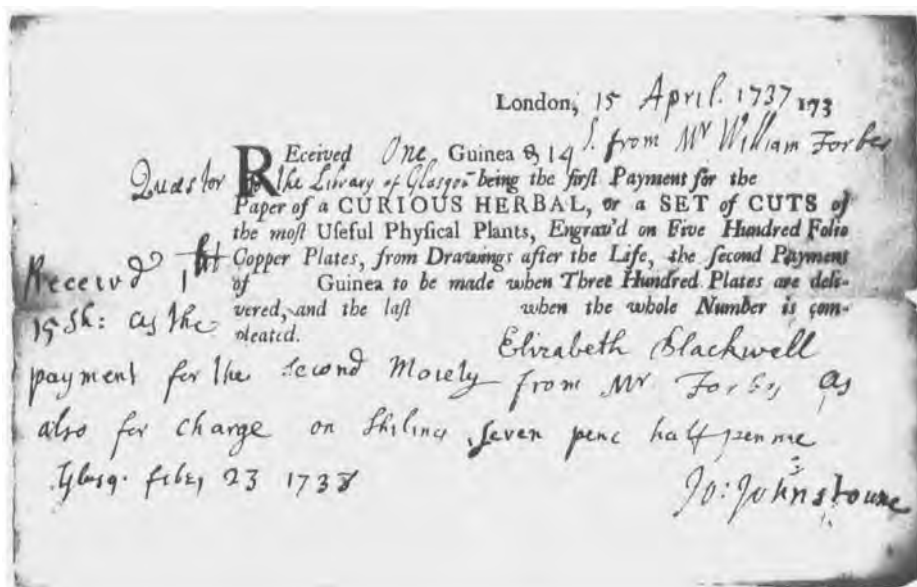 London, 15 April. 1737 173
REceived One Guinea & 14 s. from Mr William Forbes
Questor to the Library of Glasgow being the first Payment for the
Paper of a CURIOUS HERBAL, or a SET of CUTS of
the most Useful Physical Plants, Engrav'd on Five Hundred Folio
Copper Plates, from Drawings after the Life, the second Payment
of Guinea to be made when Three Hundred Plates are deli-
vered, and the last when the whole Number is com-
pleated.
Elizabeth Blackwell
Received
15 Sh: as the
payment for the second Moiety from Mr Forbes as
also for charge on Shiling seven penc half penne
Glasg. feb, 23 1738
Jo: Johnstoune